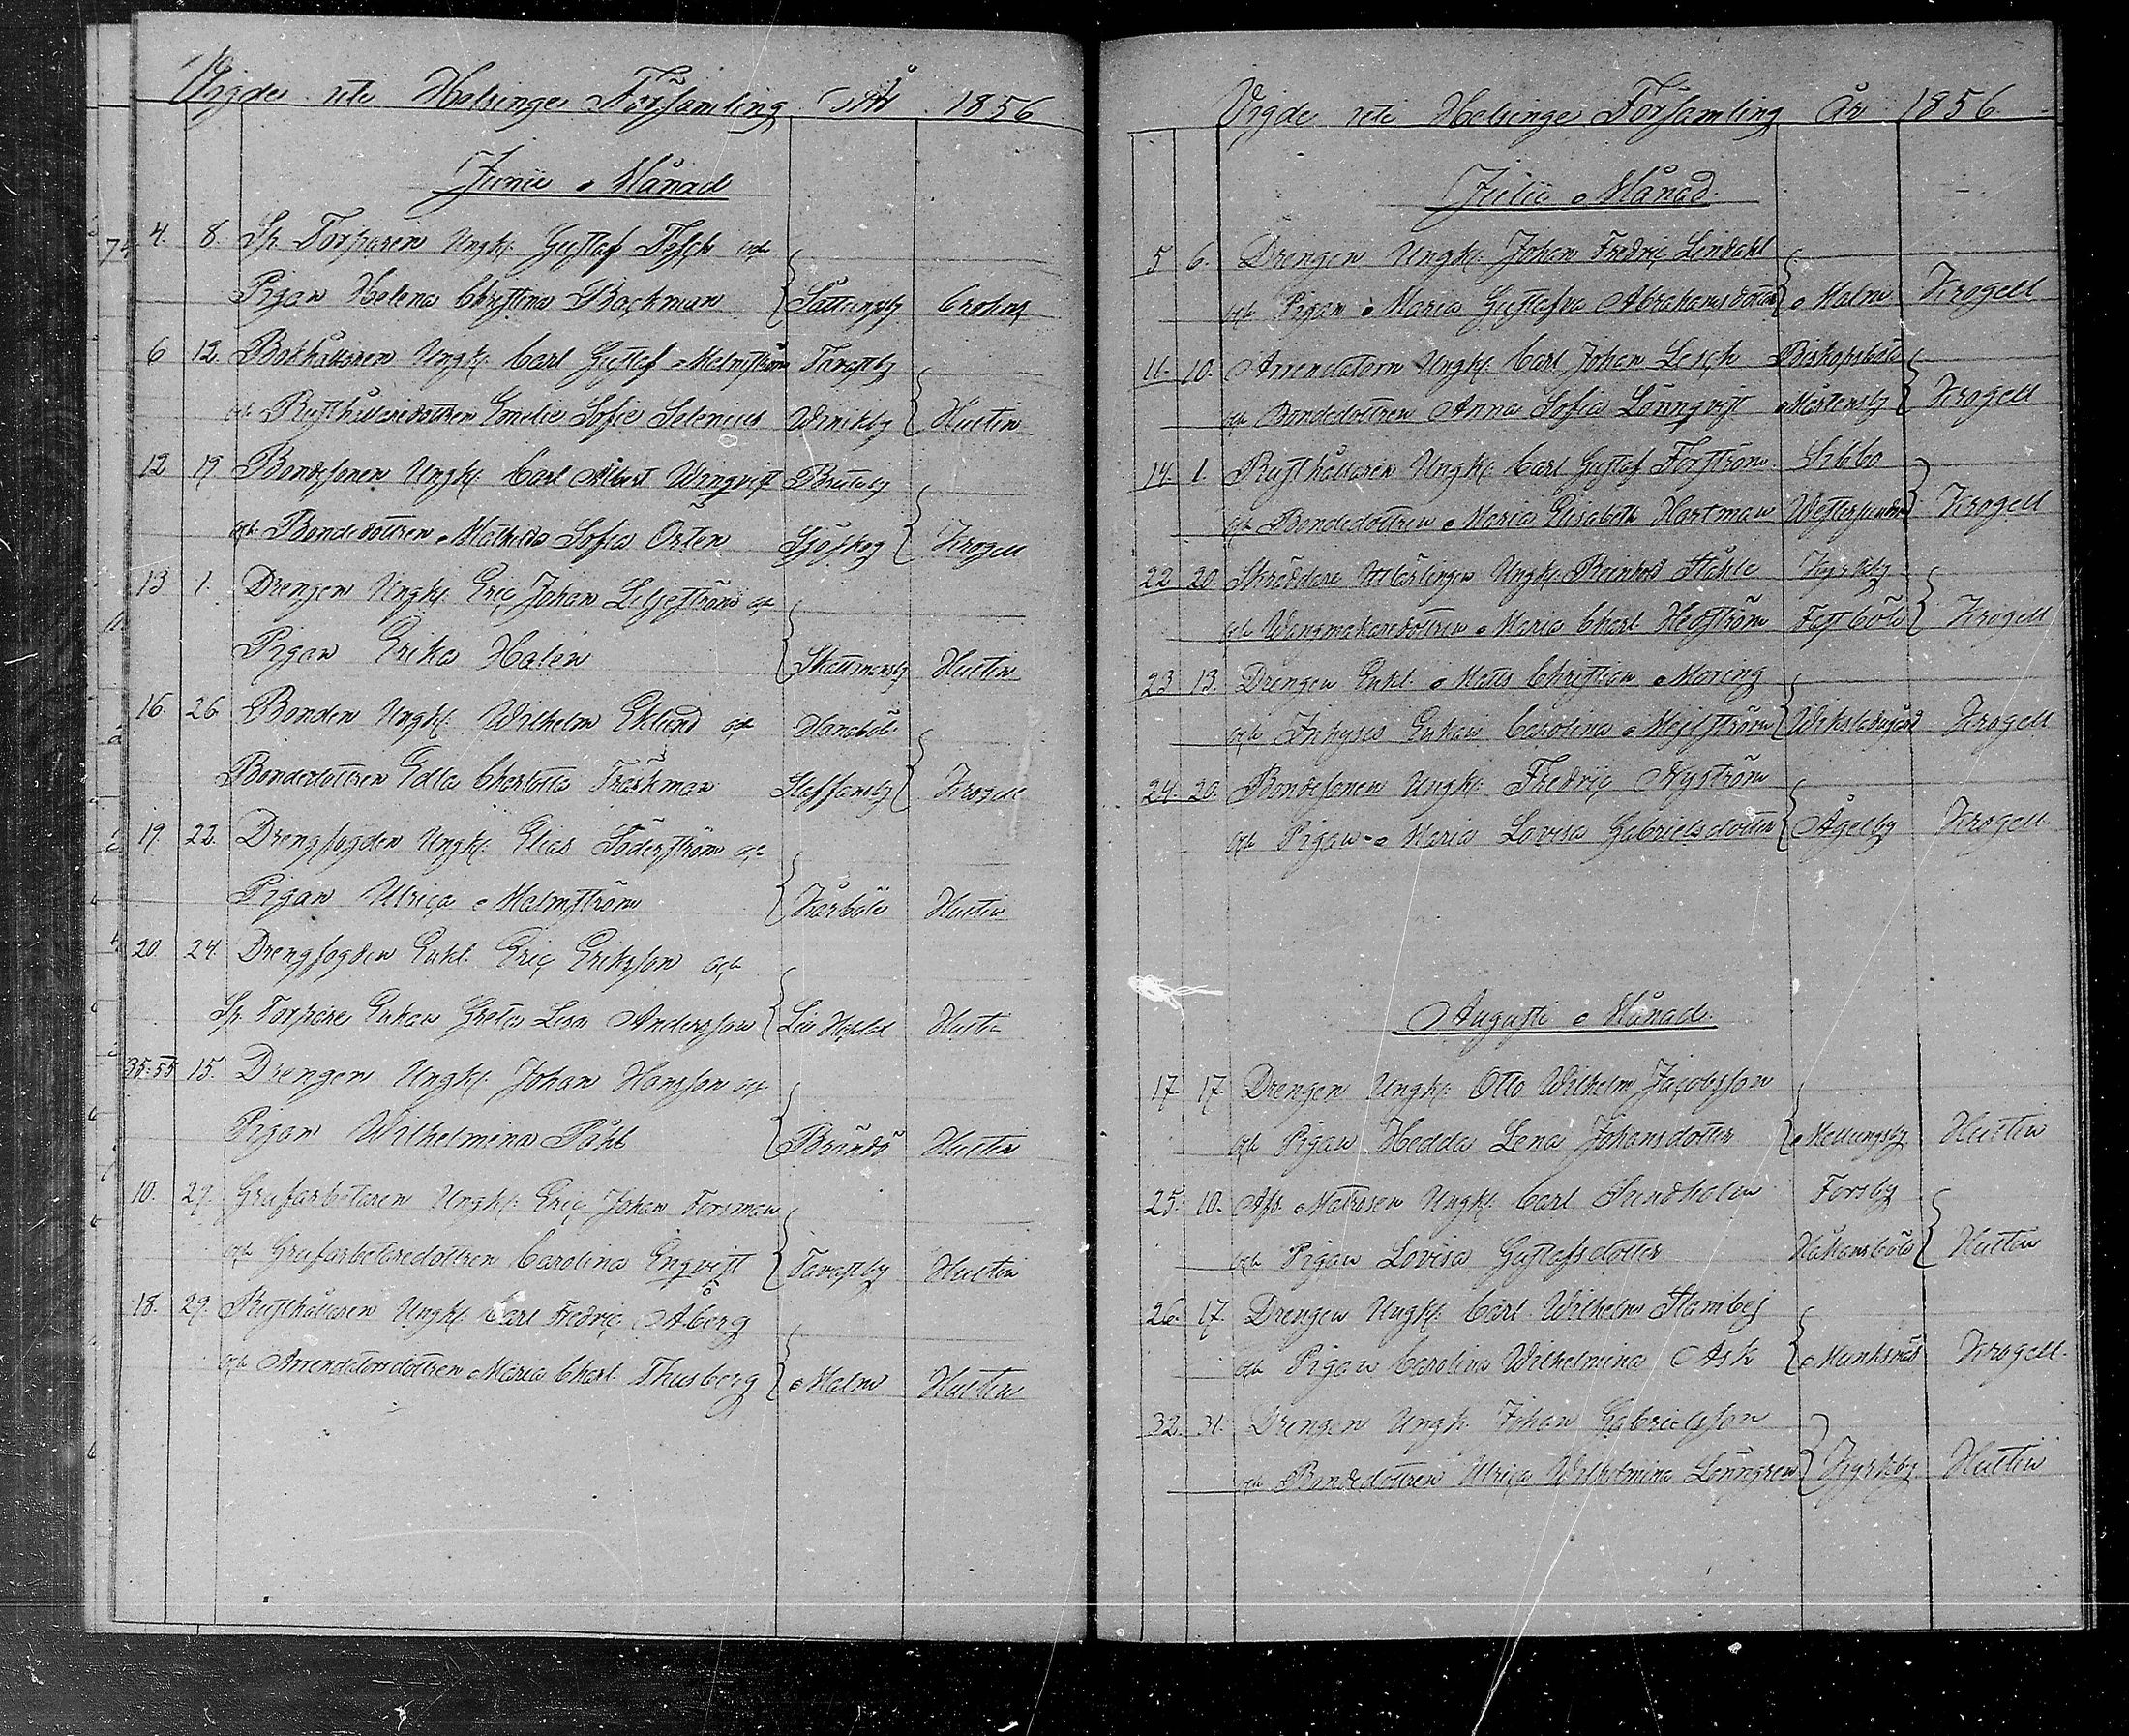 Vigde uti Helsinge Församling År 1856
Junii Månad
4. 8. Sp. Torparen Ungk. Gustaf Fesch och
Pigan Helena Christina Backman Sottungsby Crohns
6 12. Bokhållaren Ungk. Carl Gustaf Malmström Tavastby
och Rusthållaredottren Emelie Sofie Selenius Winikby Hultin
12 19. Bondesonen Ungk. Carl Albert Wingvist
och Bondedottren Mathilda Sofia Örten Sjöskog Krogell
13 1. Drengen Ungk. Eric Johan Liljeström och
Pigan Erika Halen Skattmansby Hultin
16. 26. Bonden Ungk. Wilhelm Eklund och Hanaböle
Bondedottren Edla Charlotta Träskman Staffansby Krogell
19. 22. Drengfogden Ungk. Elias Söderström och
Pigan Ulrica Malmström Kårböle Hultin
20. 24. Drengfogden Enkl. Eric Eriksson och
Sp. Torpare Enkan Greta Lisa Andersson Hultin
35:55 15. Drengen Ungk. Johan Hansson och
Pigan Wilhelmina Påhl Brändö Hultin
10. 29. Grufarbetaren Ungk. Eric Johan Forsman
och Grufarbetaredottren Carolina Engvist Tavastby Hultin
18. 29. Rusthållaren Ungk. Carl Fredric Åberg
och Arrendatorsdottren Maria Charl. Thusberg Malm Hultin
Vigde uti Helsinge Församling År 1856.
Julii Månad
5 6. Drengen Ungk. Johan Fredric Lindahl
och Pigan Maria Gustafva Abrahamsdotter Malm Krogell
11. 10. Arrendatorn Ungk. Carl Johan Lesch Biskopsböle
och Bondedottren Anna Sofia Lönnqvist Mårtensby Krogell
14. 1. Rusthållaren Ungk. Carl Gustaf Forström Sibbo
och Bondedottren Maria Elisabeth Hartman Westersundom Krogell
22 20. Skräddare Lärlingen Ungk. Reinhold Ståhle Kyrkby
och Wangmakaredottren Maria Charl. Hedström Fastböle Krogell
23 13. Drengen Enkl. Matts Christian Moring
och Inhyses Enkan Carolina Meilström Krogell
24. 20. Bondesonen Ungk. Fredric Nyström
och Pigan Maria Lovisa Gabrielsdotter Ågelby Krogell
Augusti Månad.
17. 17. Drengen Ungk. Otto Wilhelm Jacobsson
och Pigan Hedda Lena Johansdotter Mellungsby Hultin
25. 10. Afs. Matrosen Ungk. Carl Sundholm Forsby
och Pigan Lovisa Gustafsdotter Håkansböle Hultin
26. 17. Drengen Ungk. Carl Wilhelm Stambej
och Pigan Carolina Wilhelmina Ask Munksnäs Krogell.
32. 31. Drengen Ungk. Johan Gabrielsson
och Bondedottren Ulrica Wilhelmina Lönngren Kyrkby Hultin